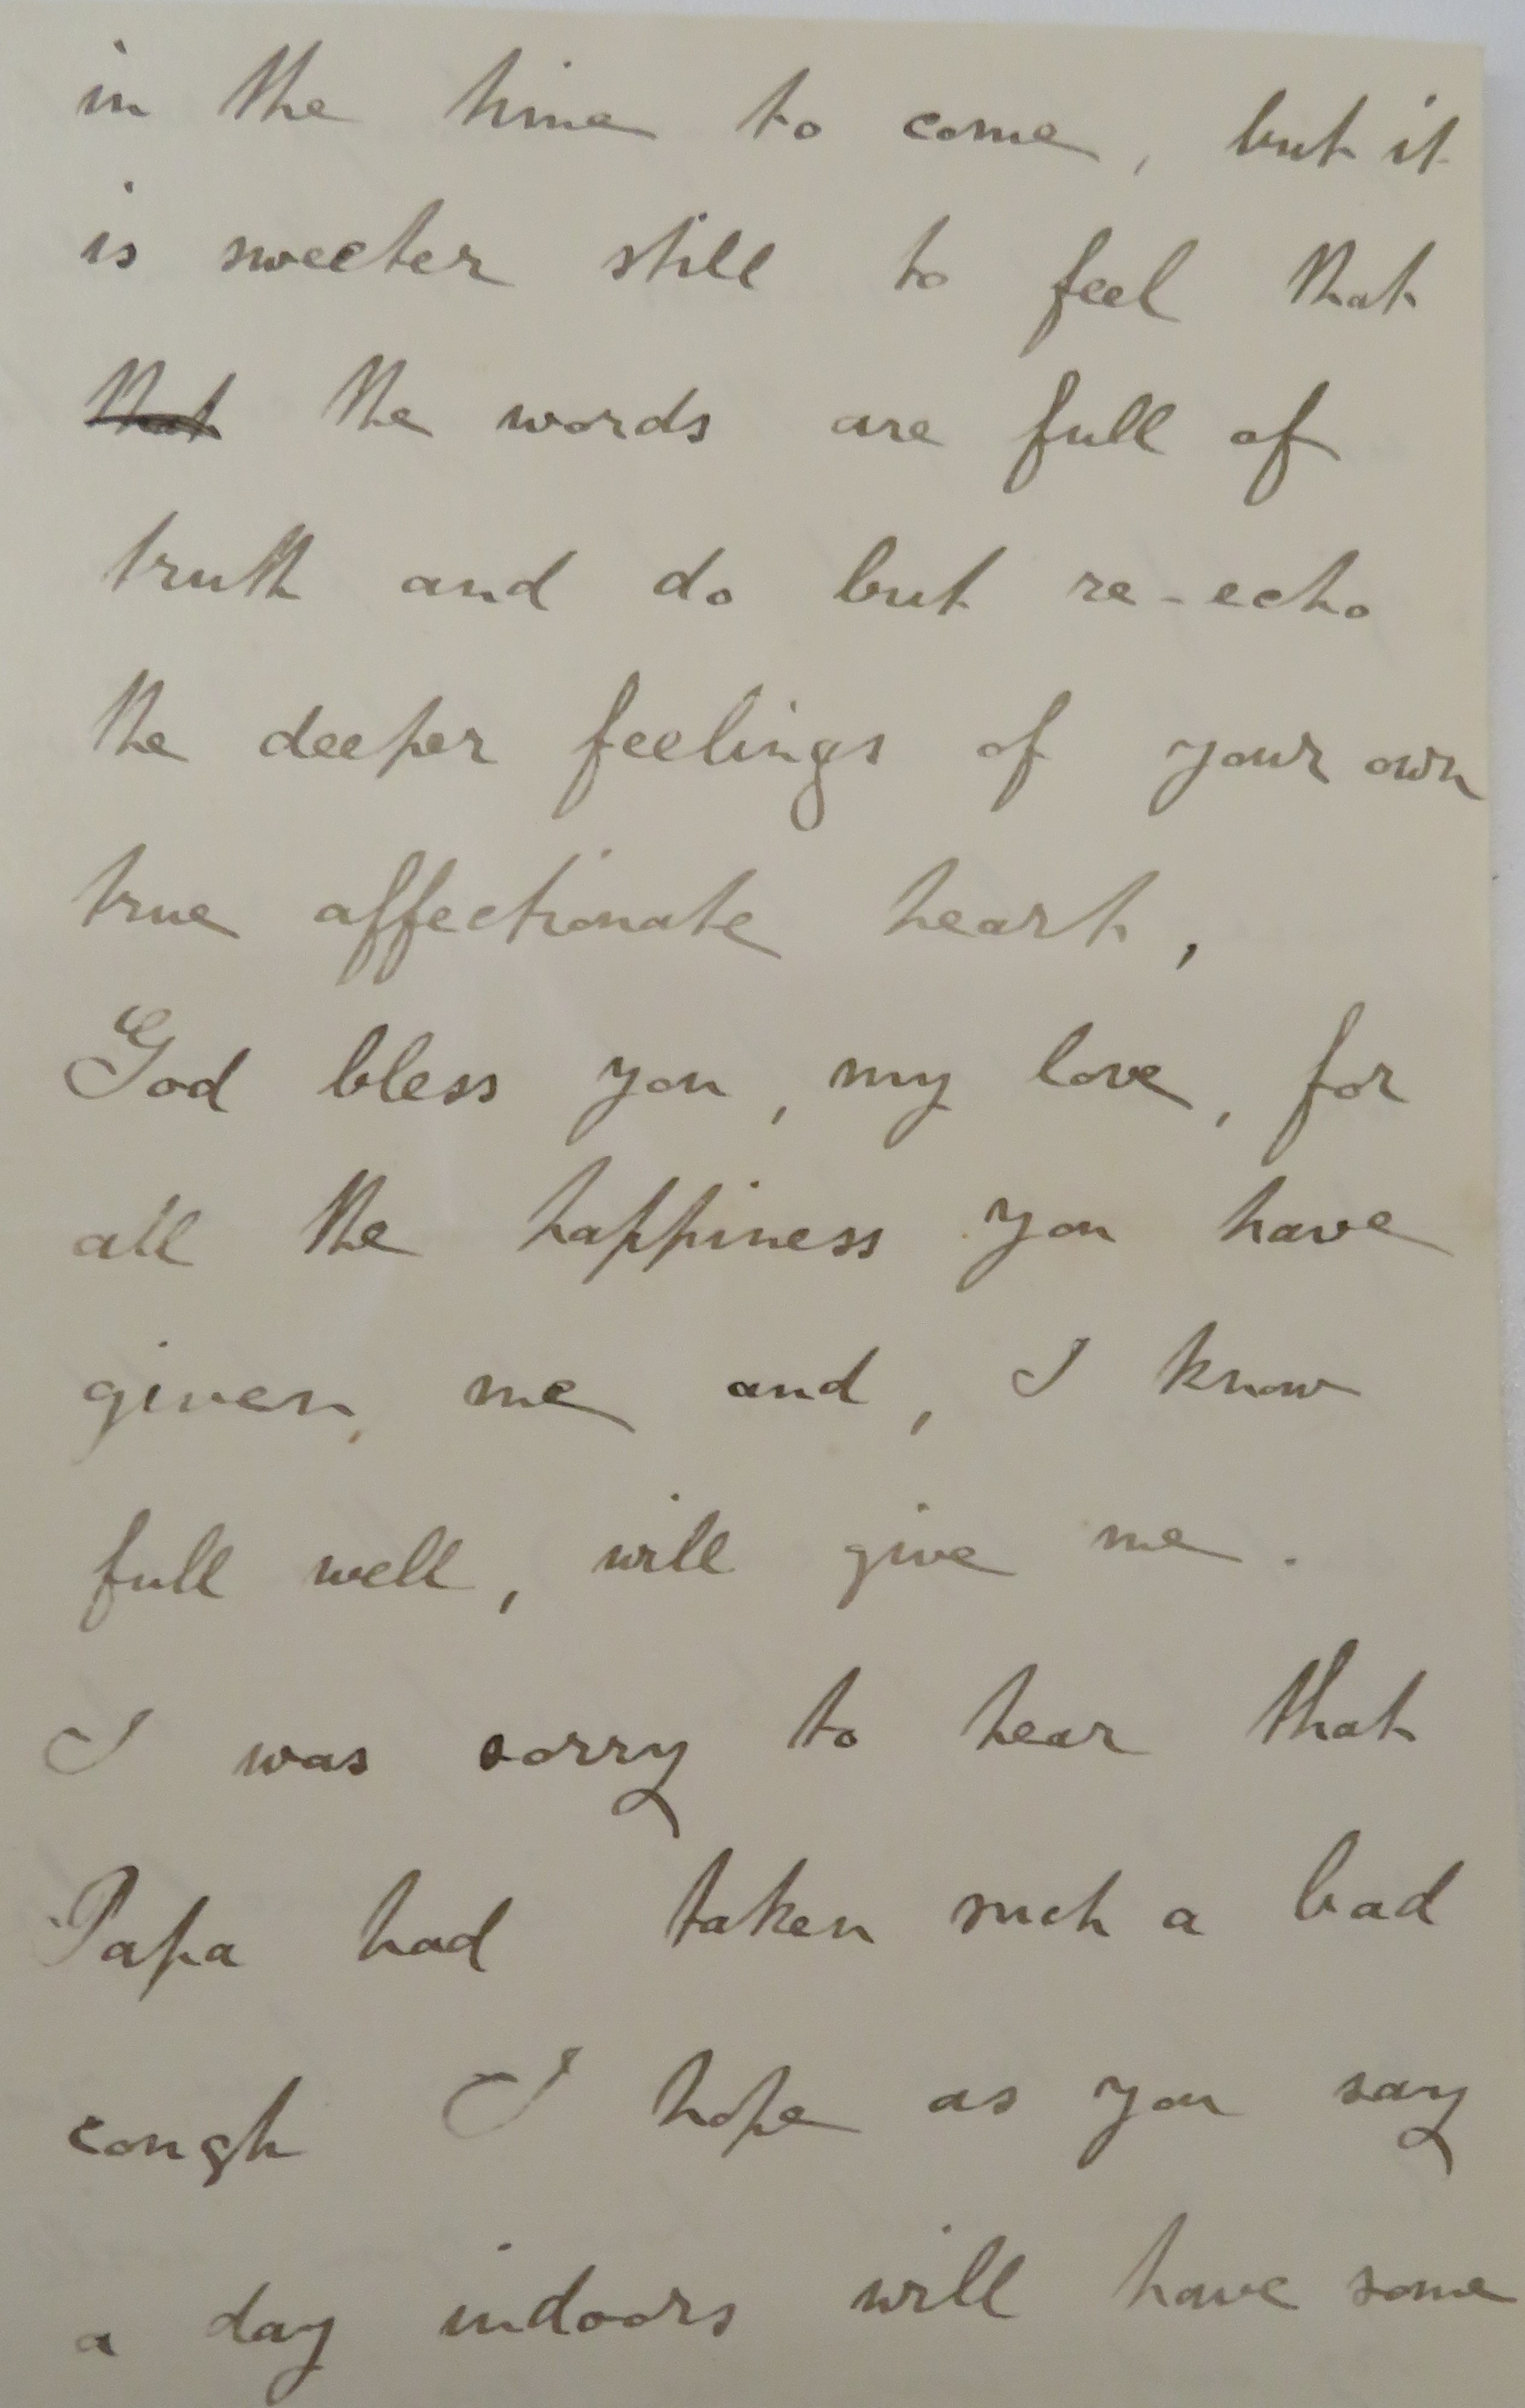 in the time to come, but it
is sweeter still to feel that
that the words are full of
truth and do but re-echo
the deeper feelings of your own
true affectionate heart,
God bless you, my love, for
all the happiness you have
given, me and, I know
full well, will give me.
I was sorry to hear that
Papa had taken such a bad
cough I hope as you say
a day indoors will have some